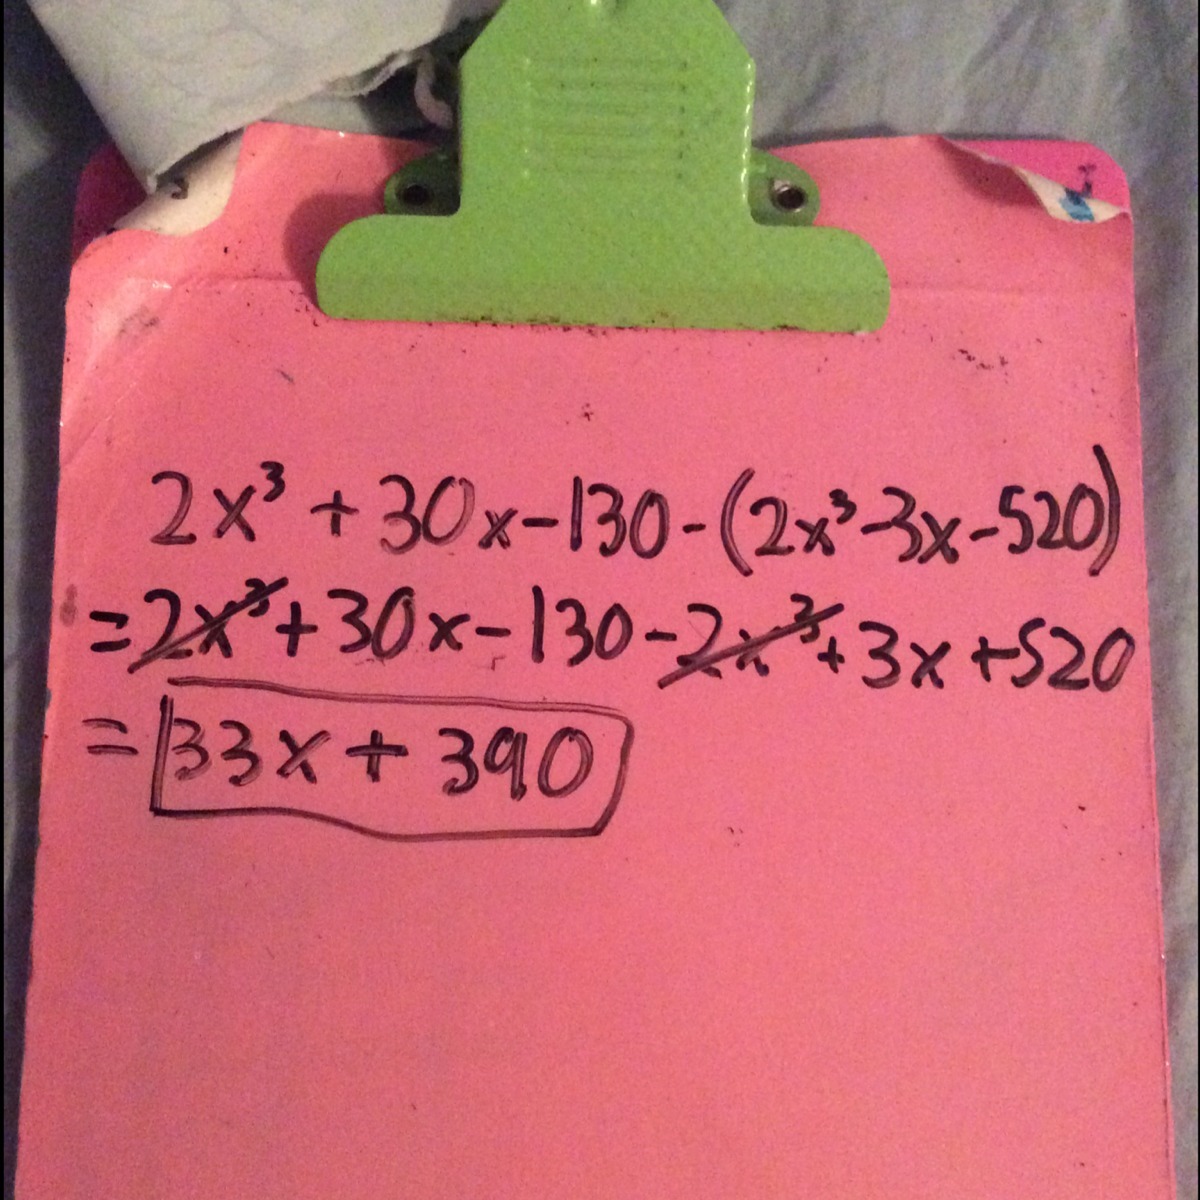 2x³ + 30x - 130 - (2x³ - 3x - 520)
= 2x³ + 30x - 130 - 2x³ + 3x + 520
= 33x + 390